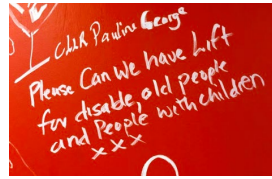 Cllr Pauline George
Please Can We have Lift
for disable, old people
and People with children
xxx